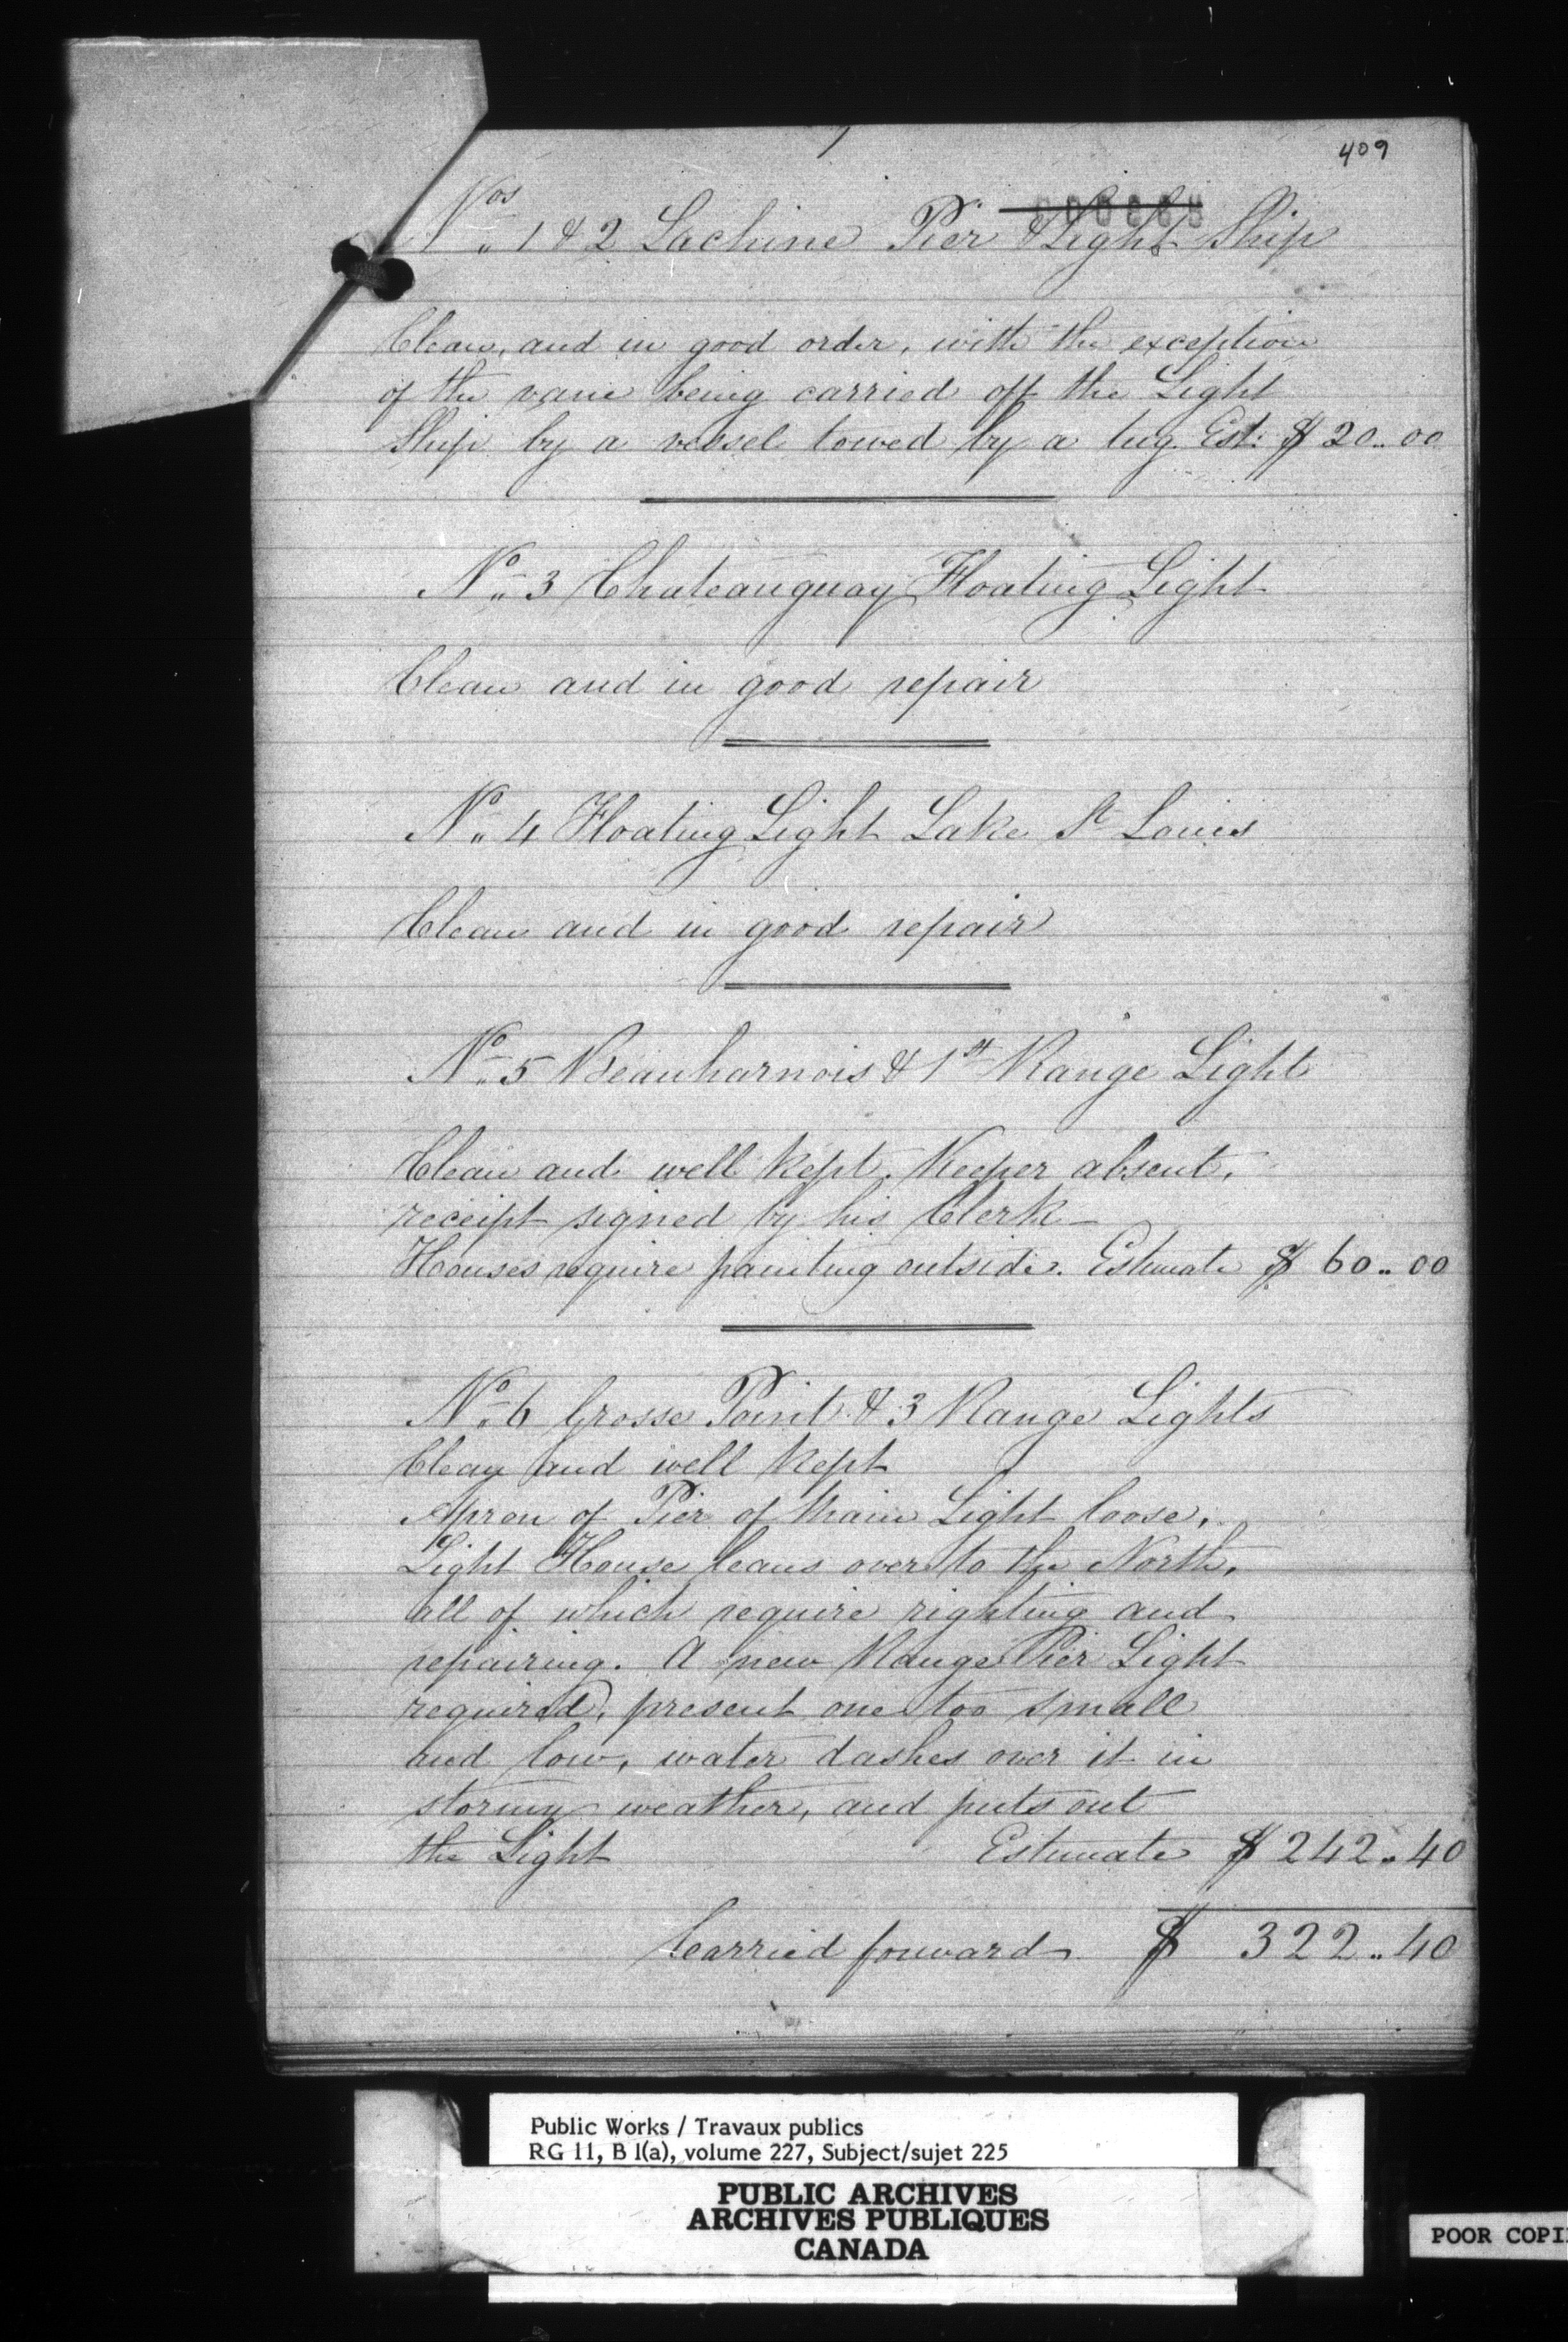 1
409
Nos 1 & 2 Lachine Pier & Light Ship
Clean, and in good order, with the exception
of the vane being carried off the Light
Ship by a vessel towed by a tug. Est: $ 20.. 00
No 3 Chateauguay Floating Light
Clean and in good repair
No 4 Floating Light Lake St Louis
Clean and in good repair
No 5 Beauharnois & 1st Range Light
Clean and well kept. Keeper absent,
receipt signed by his Clerk –
Houses require painting outside. Estimate $ 60.. 00
No 6 Grosse Point & 3 Range Lights
Clean and well kept
Apron of Pier of Main Light loose,
Light House leans over to the North,
all of which require righting and
repairing. A new Range Pier Light
required, present one too small
and low, water dashes over it in
stormy weather, and puts out
the Light Estimate $ 242.. 40
Carried forward $ 322.. 40
Public Works / Travaux publics
RG 11, B 1(a), volume 227, Subject/sujet 225
PUBLIC ARCHIVES
ARCHIVES PUBLIQUES
CANADA
POOR COPI